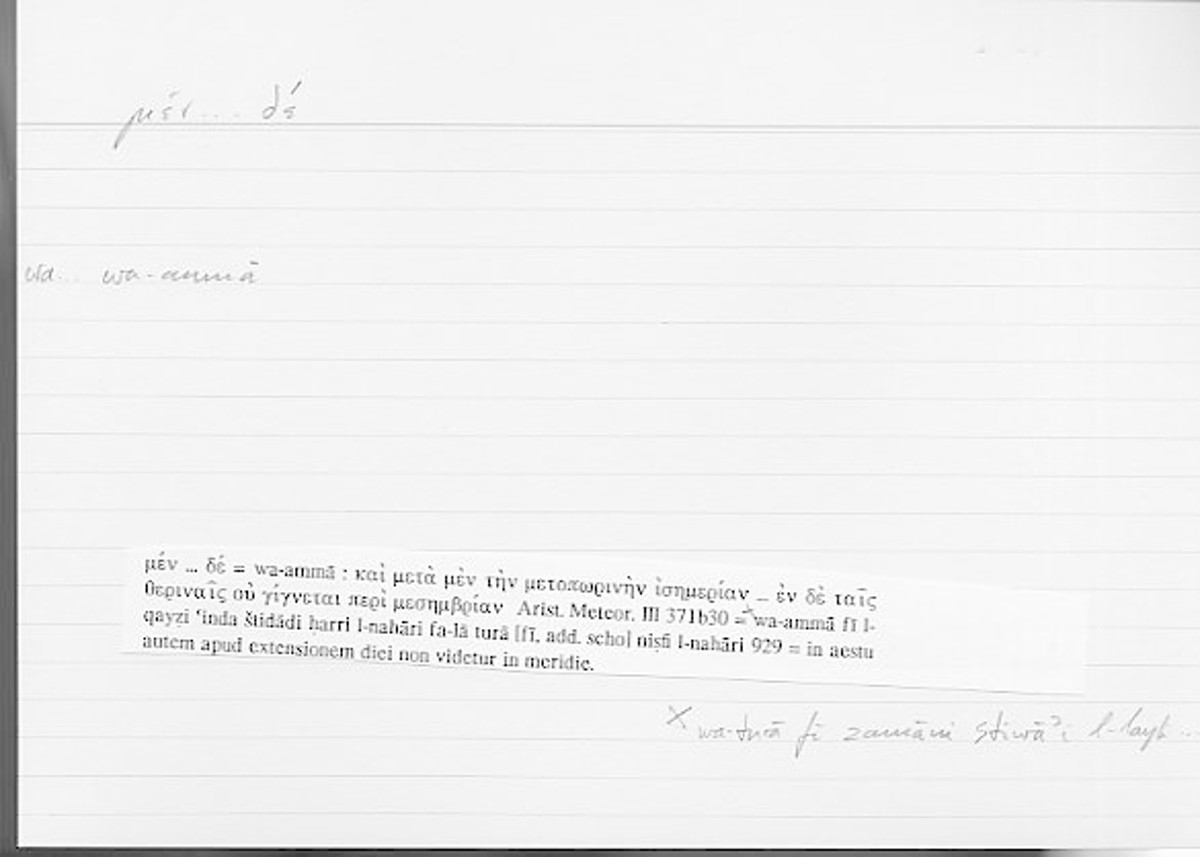 μέν ... δέ
wa... wa-ammā
μέν ... δέ = wa-ammā : καὶ μετὰ μὲν τὴν μετοπωρινὴν ἰσημερίαν ... ἐν δὲ ταῖς
θεριναῖς οὐ γίγνεται περὶ μεσημβρίαν Arist. Meteor. III 371b30 = ×wa-ammā fī l-
qayẓi ʿinda štidādi ḥarri l-nahāri fa-lā turā [fī, add. scho] niṣfi l-nahāri 929 = in aestu
autem apud extensionem diei non videtur in meridie.
× wa-turā fī zamāni stiwāʾi l-layl ...